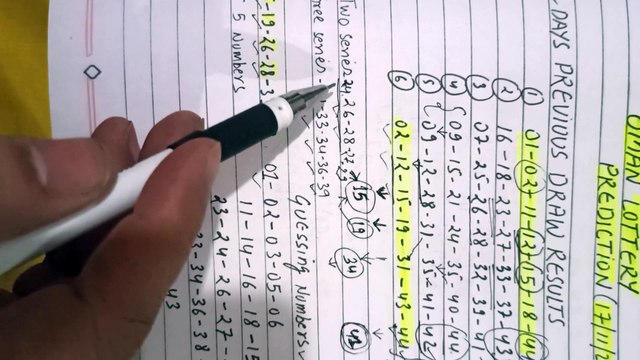 LOTTERY
PREDICTION (17/11/
DAYS PREVIOUS DRAW RESULTS
① 01-02-11-12-05-18-44
② 16-18-23-27-33-37-43
③ 07-25-26-28-32-39-4
④ 09-15-21-24-35-40-44
⑤ 09-12-28-31-35-41-42
⑥ 02-12-15-19-31-43-44
Two series 24 26-28-27-29
series - 33-34-36-39
15 19 34 42
-19-26-28-3
5 Numbers
GUESSING NUMBERS
01-02-03-05-06
11-14-16-18-15
23-24-26-27-
33-34-36-38
43